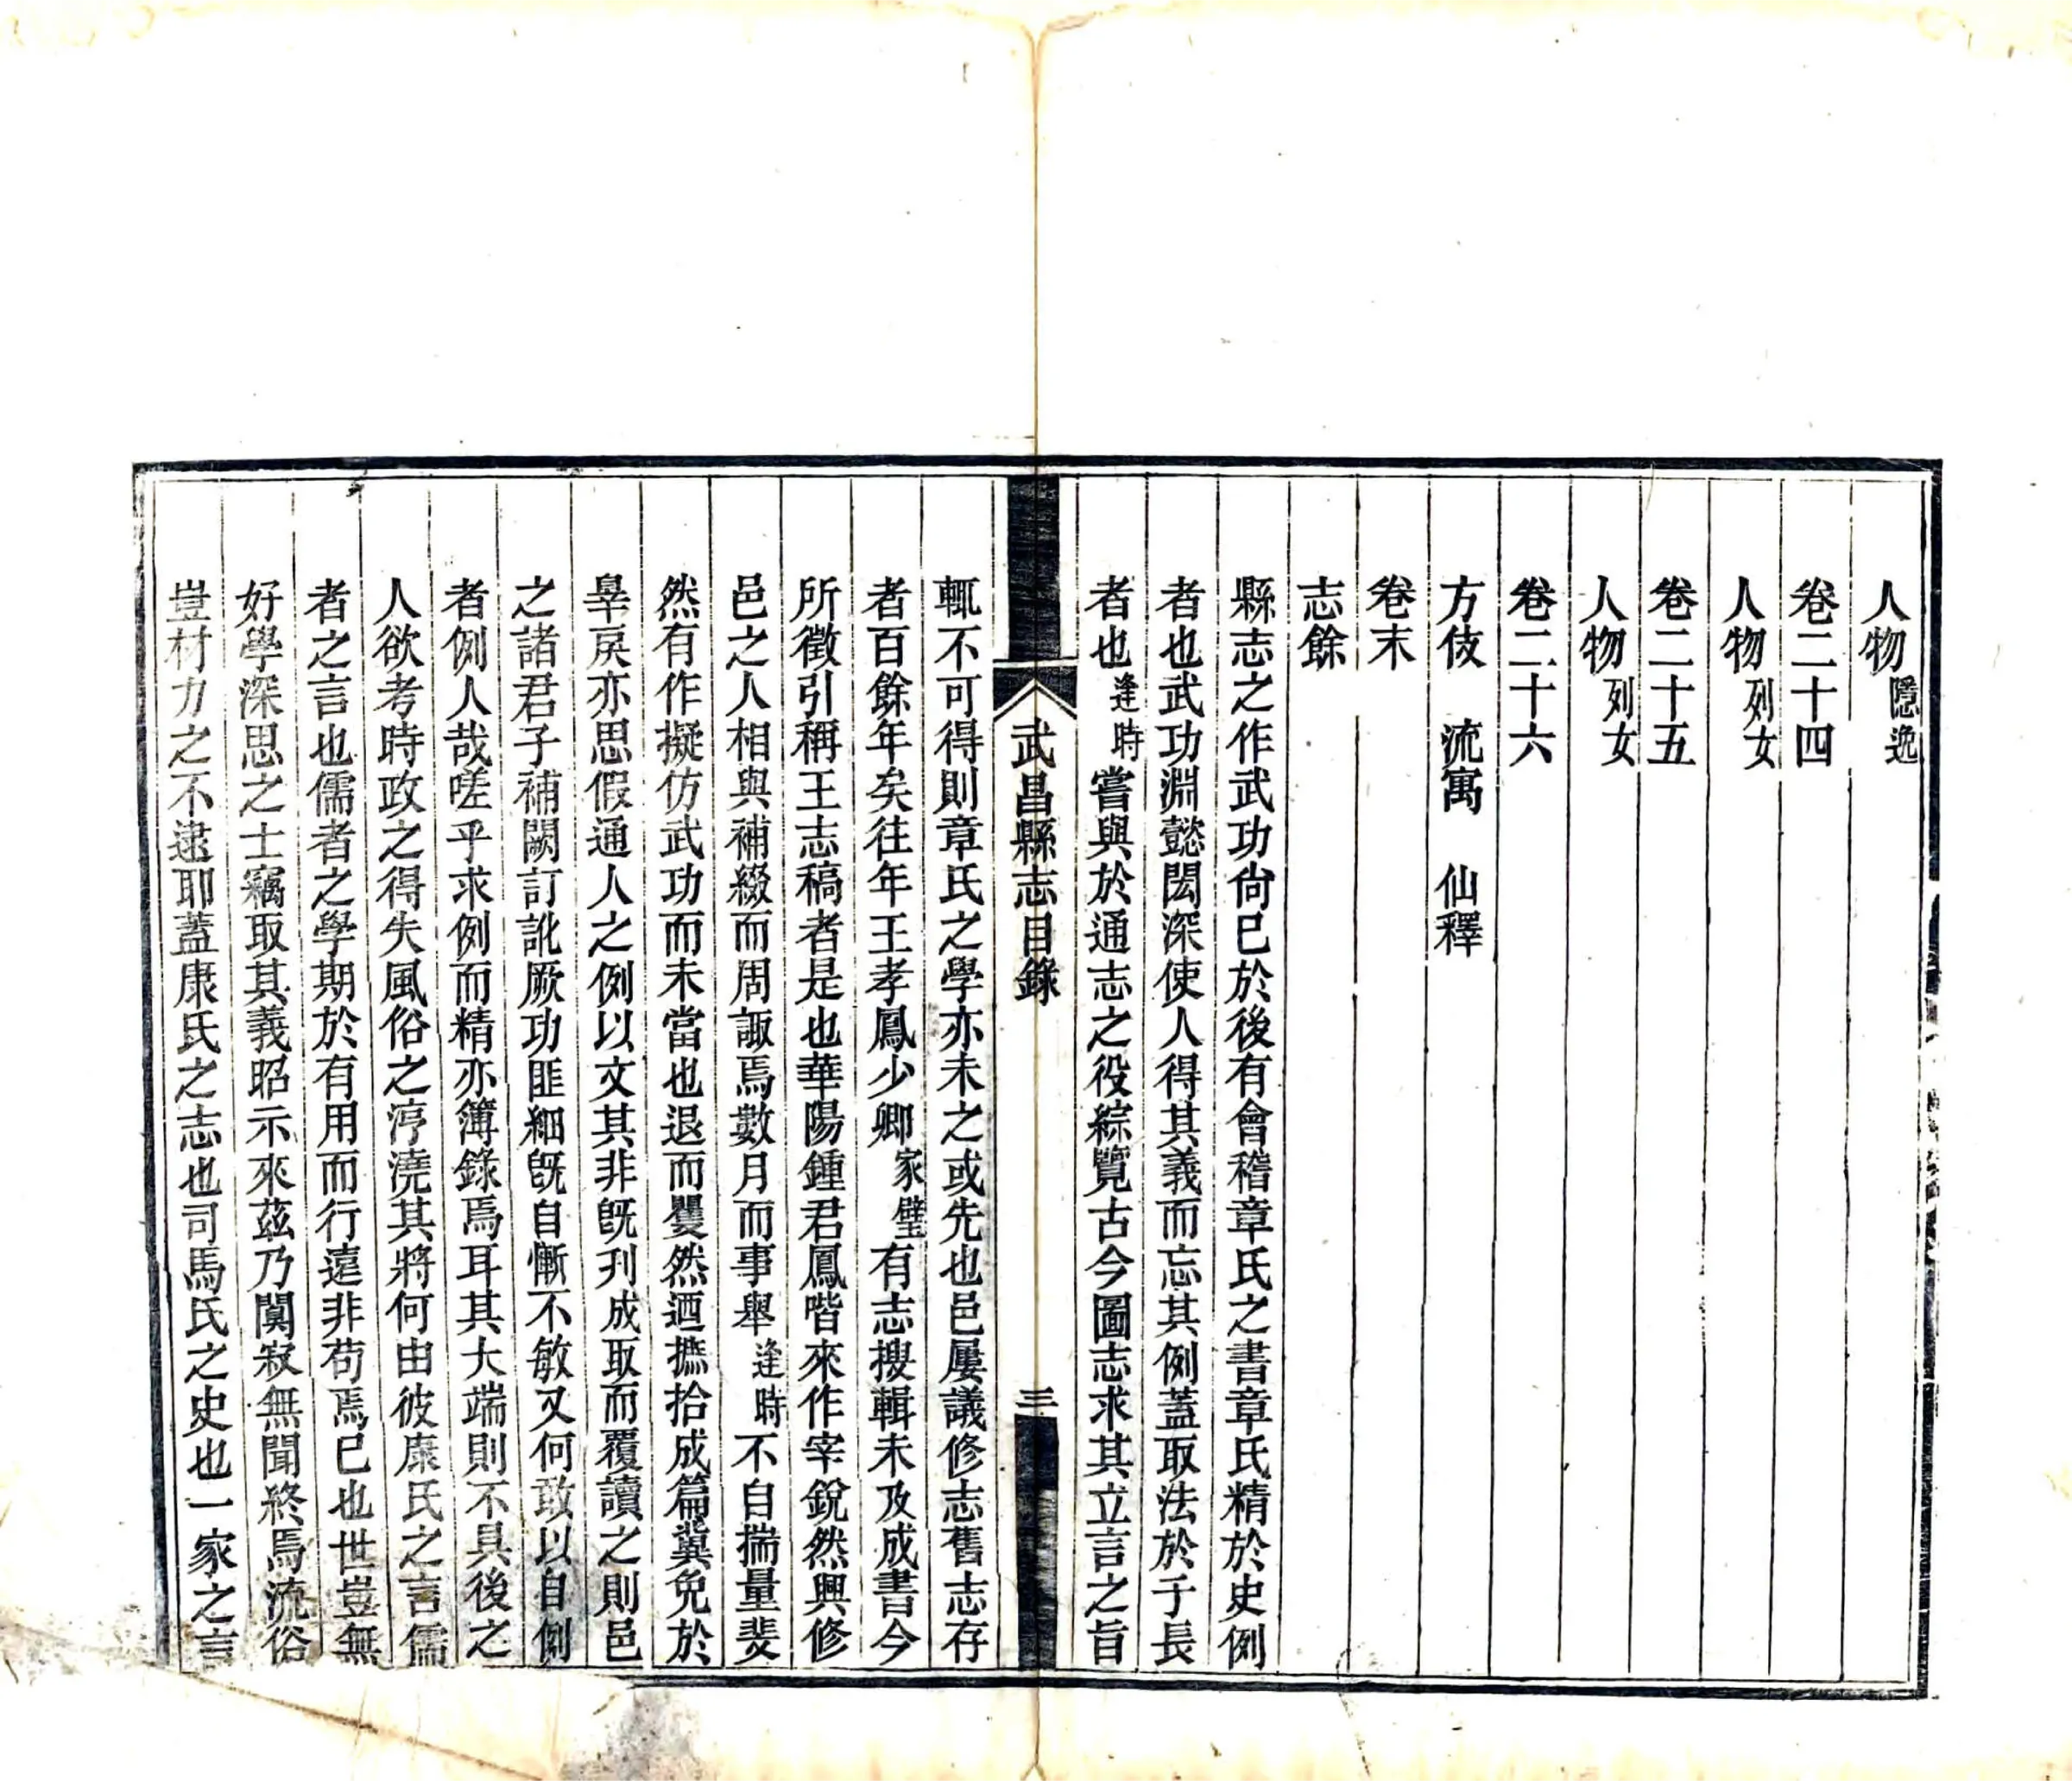 人物隱逸
卷二十四
人物列女
卷二十五
人物列女
卷二十六
方伎　流寓　仙釋
卷末
志餘
縣志之作武功尙已於後有會稽章氏之書章氏精於史例
者也武功淵懿閎深使人得其義而忘其例蓋取法於子長
者也逢時嘗與於通志之役綜覽古今圖志求其立言之旨
武昌縣志目錄
三
輒不可得則章氏之學亦未之或先也邑屢議修志舊志存
者百餘年矣往年王孝鳳少卿家璧有志搜輯未及成書今
所徵引稱王志稿者是也華陽鍾君鳳喈來作宰銳然興修
邑之人相與補綴而周諏焉數月而事舉逢時不自揣量斐
然有作擬仿武功而未當也退而矍然迺摭拾成篇冀免於
辠戾亦思假通人之例以文其非旣刋成取而覆讀之則邑
之諸君子補闕訂訛厥功匪細旣自慚不敏又何敢以自例
者例人哉嗟乎求例而精亦簿錄焉耳其大端則不具後之
人欲考時政之得失風俗之渟澆其將何由彼康氏之言儒
者之言也儒者之學期於有用而行遠非苟焉已也世豈無
好學深思之士竊取其義昭示來茲乃闃寂無聞終焉流俗
豈材力之不逮耶蓋康氏之志也司馬氏之史也一家之言